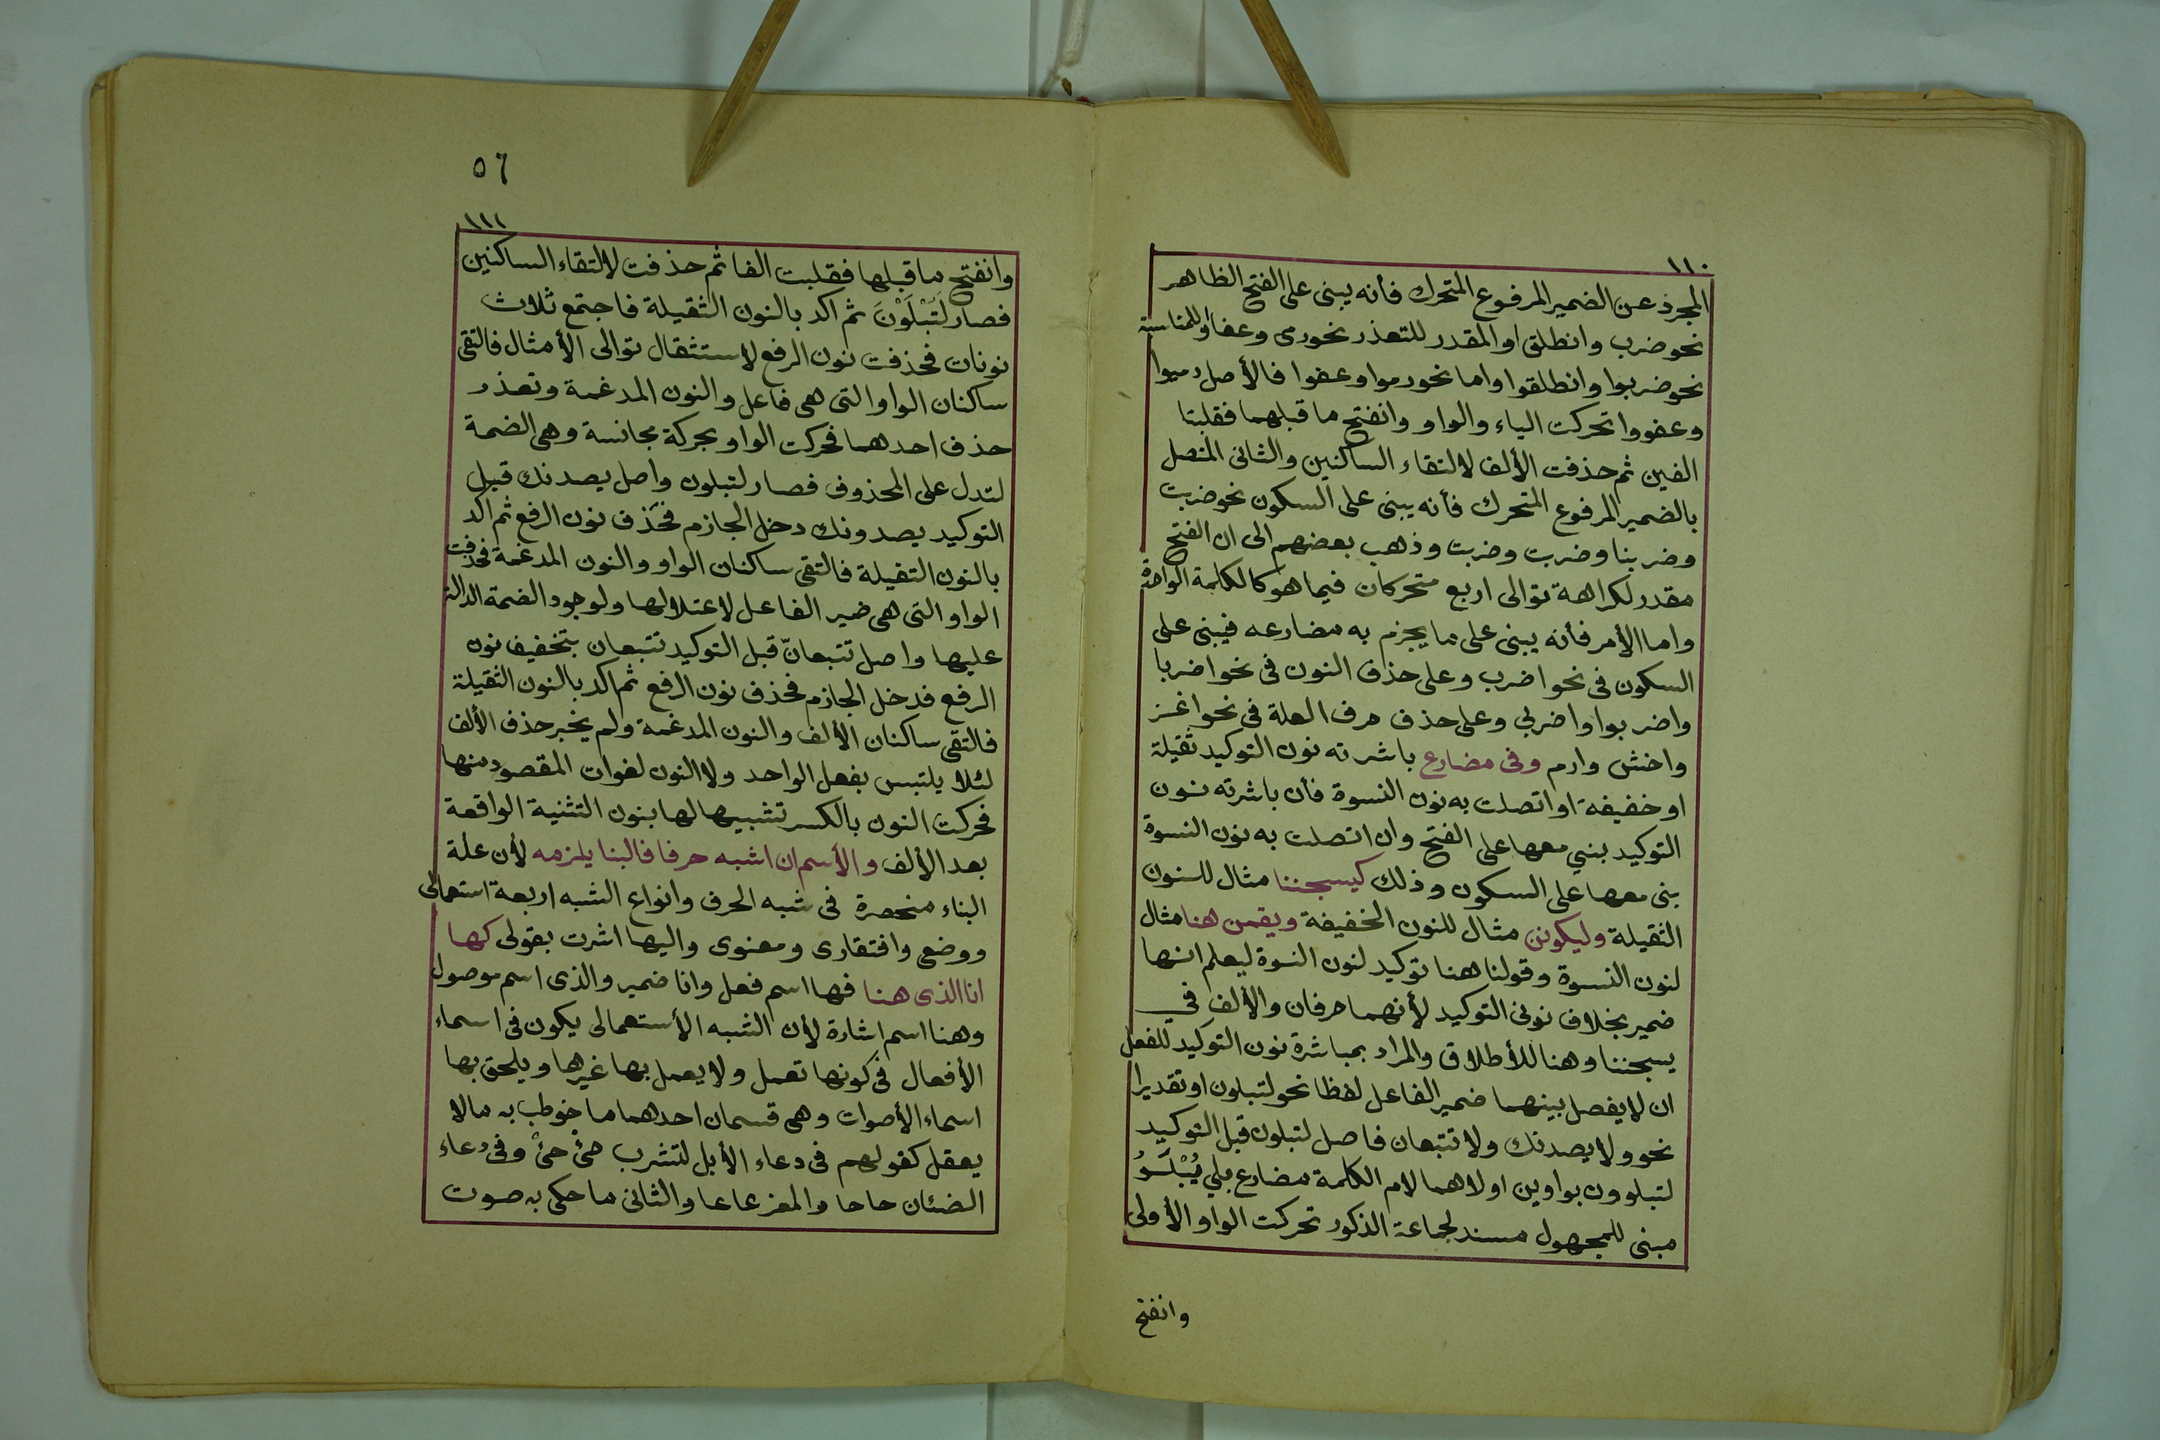 ١١٠
المجرد عن الضمير المرفوع المتحرك فأنه يبنى على الفتح الظاهر
نحو ضرب وانطلق او المقدر للتعذر نحو رمى وعفا او للمناسبة
نحو ضربوا وانطلقوا واما نحو رموا وعفوا فالأصل رميوا
وعفووا تحركت الياء والواو وانفتح ما قبلهما فقلبتا
الفين ثم حذفت الألف لالتقاء الساكنين والثانى المتصل
بالضمير المرفوع المتحرك فأنه يبنى على السكون نحو ضربت
وضربنا وضربت وضربت وذهب بعضهم الى ان الفتح
مقدر لكراهة توالى اربع متحركان فيما هو كالكلمة الواحدة
واما الأمر فأنه يبنى على ما يجزم به مضارعه فيبنى على
السكون فى نحو اضرب وعلى حذف النون فى نحو اضربا
واضربوا واضربى وعلى حذف حرف العلة فى نحو اغز
واخش وارم وفى مضارع باشرته نون التوكيد ثقيلة
او خفيفة او اتصلت به نون النسوة فأن باشرته نون
التوكيد بني معها على الفتح وان اتصلت به نون النسوة
بنى معها على السكون وذلك كيسجننا مثال للنون
الثقيلة وليكونن مثال للنون الخفيفة ويقمن هنا مثال
لنون النسوة وقولنا هنا توكيد لنون النسوة ليعلم انها
ضمير بخلاف نونى التوكيد لأنهما حرفان والألف في
يسجننا وهنا للأطلاق والمراد بمباشرة نون التوكيد للفعل
ان لا يفصل بينهما ضمير الفاعل لفظا نحو لتبلون او تقديرا
نحو ولا يصدنك ولا تتبعان فاصل لتبلون قبل التوكيد
لتبلوون بواوين اولاهما لام الكلمة مضارع بلي يُبْلَوُ
مبنى للمجهول مسند لجماعة الذكور تحركت الواو الأولى
وانفتح
٥٦
١١١
وانفتح ما قبلها فقلبت الفا ثم حذفت لالتقاء الساكنين
فصار لَتُبْلَوْنَ ثم اكد بالنون الثقيلة فاجتمع ثلاث
نونات فحذفت نون الرفع لاستثقال توالى الأمثال فالتقى
ساكنان الواو التى هى فاعل والنون المدغمة وتعذر
حذف احدهما فحركت الواو بحركة مجانسة وهى الضمة
لتدل على المحذوف فصار لتبلون واصل يصدنك قبل
التوكيد يصدونك دخل الجازم فحذف نون الرفع ثم اكد
بالنون الثقيلة فالتقى ساكنان الواو والنون المدغمة فحذفت
الواو التى هى ضمير الفاعل لاعتلالها ولوجود الضمة الدالة
عليها واصل تتبعانّ قبل التوكيد تتبعان بتخفيف نون
الرفع فدخل الجازم فحذف نون الرفع ثم اكد بالنون الثقيلة
فالتقى ساكنان الألف والنون المدغمة ولم يخبر حذف الألف
لئلا يلتبس بفعل الواحد ولا النون لفوات المقصود منها
فحركت النون بالكسر تشبيها لها بنون التثنية الواقعة
بعد الألف والأسم ان اشبه حرفا فالبنا يلزمه لأن علة
البناء منحصرة فى شبه الحرف وانواع الشبه اربعة استعمالى
ووضعى وافتقارى ومعنوى واليها اشرت بقولى كها
انا الذى هنا فها اسم فعل وانا ضمير والذى اسم موصول
وهنا اسم اشارة لأن الشبه الأستعمالى يكون فى اسماء
الأفعال فى كونها تعمل ولا يعمل بها غيرها ويلحق بها
اسماء الأصوات وهى قسمان احدهما ما خوطب به مالا
يعقل كقولهم فى دعاء الأبل لتشرب جئْ جئْ وفى دعاء
الضئان حاحا والمعز عاعا والثانى ما حكى به صوت